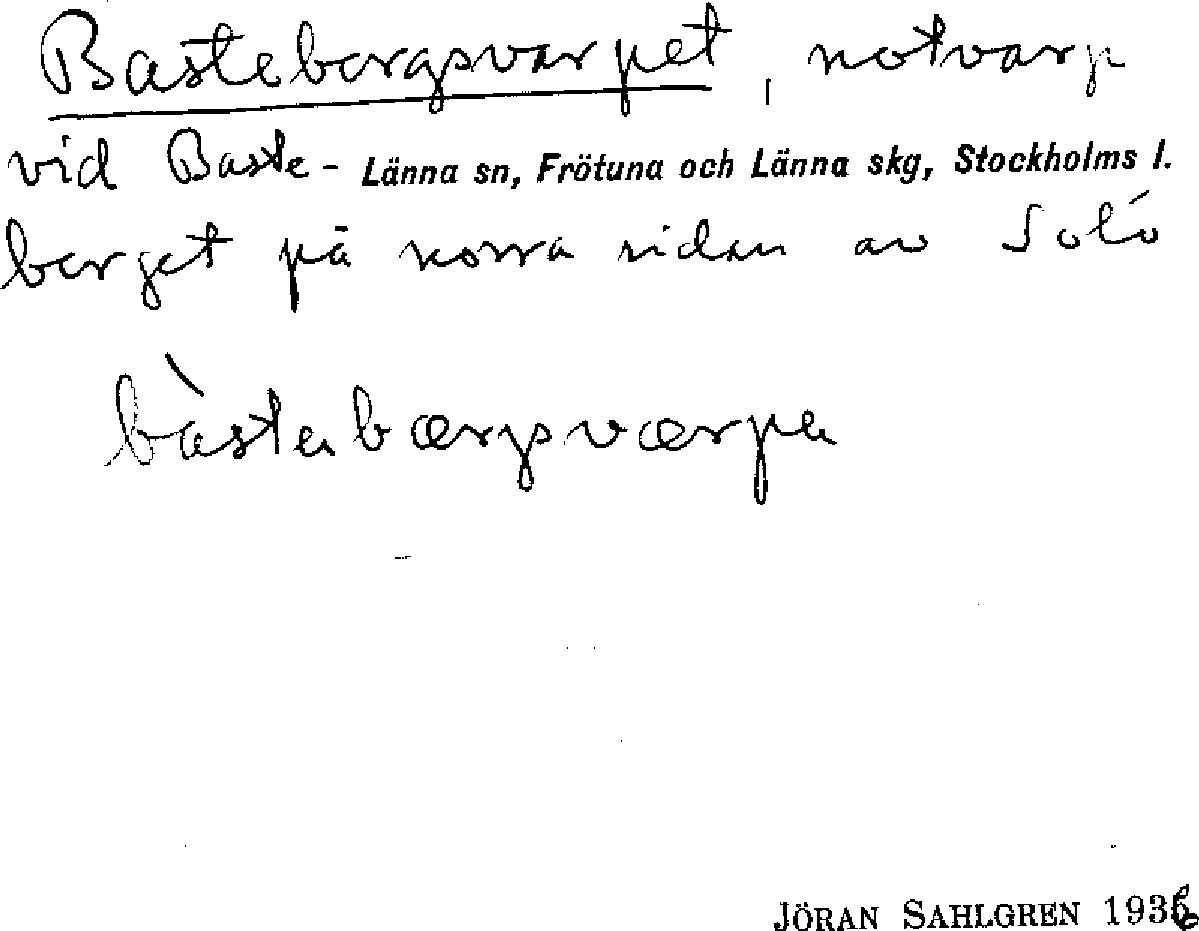 Bastebergsvarpet, notvarp
vid Baste- Länna sn, Frötuna och Länna skg, Stockholms l.
berget på norra sidan av Solö
bàstabærgsværpa
JÖRAN SAHLGREN 1936